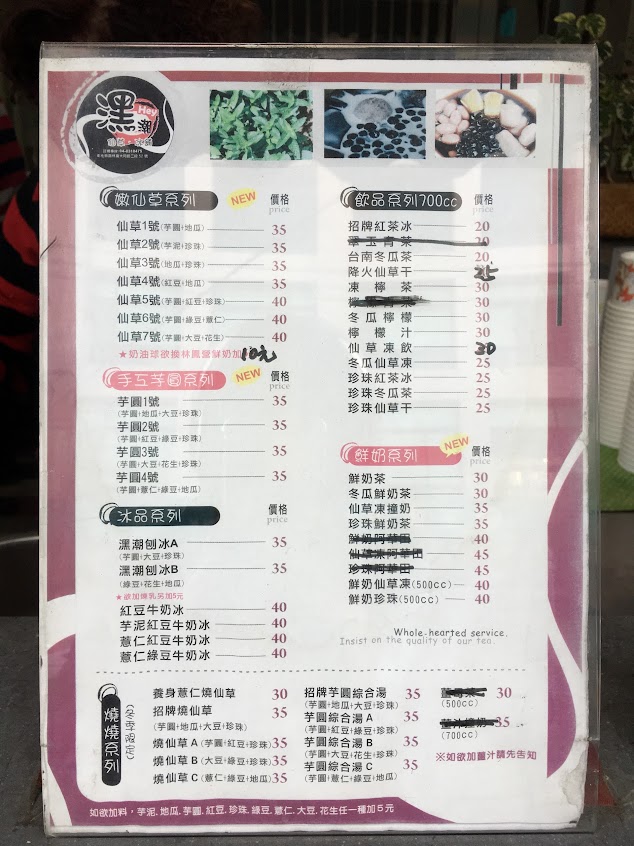 嘿 Hey 潮
嫩仙草系列 NEW 價格
price
仙草1號(芋圓+地瓜) 35
仙草2號(芋泥+珍珠) 35
仙草3號(地瓜+珍珠) 35
仙草4號(紅豆+地瓜) 35
仙草5號(芋圓+紅豆+珍珠) 40
仙草6號(芋圓+綠豆+薏仁) 40
仙草7號(芋圓+大豆+花生) 40
★奶油球欲換林鳳營鮮奶加10元
手工芋圓系列 NEW 價格
price
芋圓1號 35
(芋圓+地瓜+大豆+珍珠)
芋圓2號 35
(芋圓+紅豆+綠豆+珍珠)
芋圓3號 35
(芋圓+大豆+花生+珍珠)
芋圓4號 35
(芋圓+薏仁+綠豆+地瓜)
冰品系列 價格
price
潶潮刨冰A 35
(芋圓+大豆+珍珠)
潶潮刨冰B 35
(綠豆+花生+地瓜)
★欲加煉乳另加5元
紅豆牛奶冰 40
芋泥紅豆牛奶冰 40
薏仁紅豆牛奶冰 40
薏仁綠豆牛奶冰 40
飲品系列700cc 價格
price
招牌紅茶冰 20
翠玉青茶 20
台南冬瓜茶 20
降火仙草干 25
凍檸茶 30
30
冬瓜檸檬 30
檸檬汁 30
仙草凍飲 30
冬瓜仙草凍 25
珍珠紅茶冰 25
珍珠冬瓜茶 25
珍珠仙草干 25
鮮奶系列 NEW 價格
price
鮮奶茶 30
冬瓜鮮奶茶 30
仙草凍撞奶 35
珍珠鮮奶茶 35
鮮奶阿華田 40
仙草凍阿華田 45
珍珠阿華田 45
鮮奶仙草凍(500cc) 40
鮮奶珍珠(500cc) 40
Whole-hearted service.
Insist on the quality of our tea.
燒燒系列
(冬季限定)
養身薏仁燒仙草 30
招牌燒仙草 35
(芋圓+地瓜+大豆+珍珠)
燒仙草A(芋圓+紅豆+珍珠) 35
燒仙草B(大豆+綠豆+珍珠) 35
燒仙草C(薏仁+綠豆+地瓜) 35
招牌芋圓綜合湯 35
(芋圓+地瓜+大豆+珍珠)
芋圓綜合湯A 35
(芋圓+紅豆+綠豆+珍珠)
芋圓綜合湯B 35
(芋圓+大豆+花生+珍珠)
芋圓綜合湯C 35
(芋圓+薏仁+綠豆+地瓜)
30
(500cc)
35
(700cc)
※如欲加薑汁請先告知
如欲加料，芋泥.地瓜.芋圓.紅豆.珍珠.綠豆.薏仁.大豆.花生任一種加5元